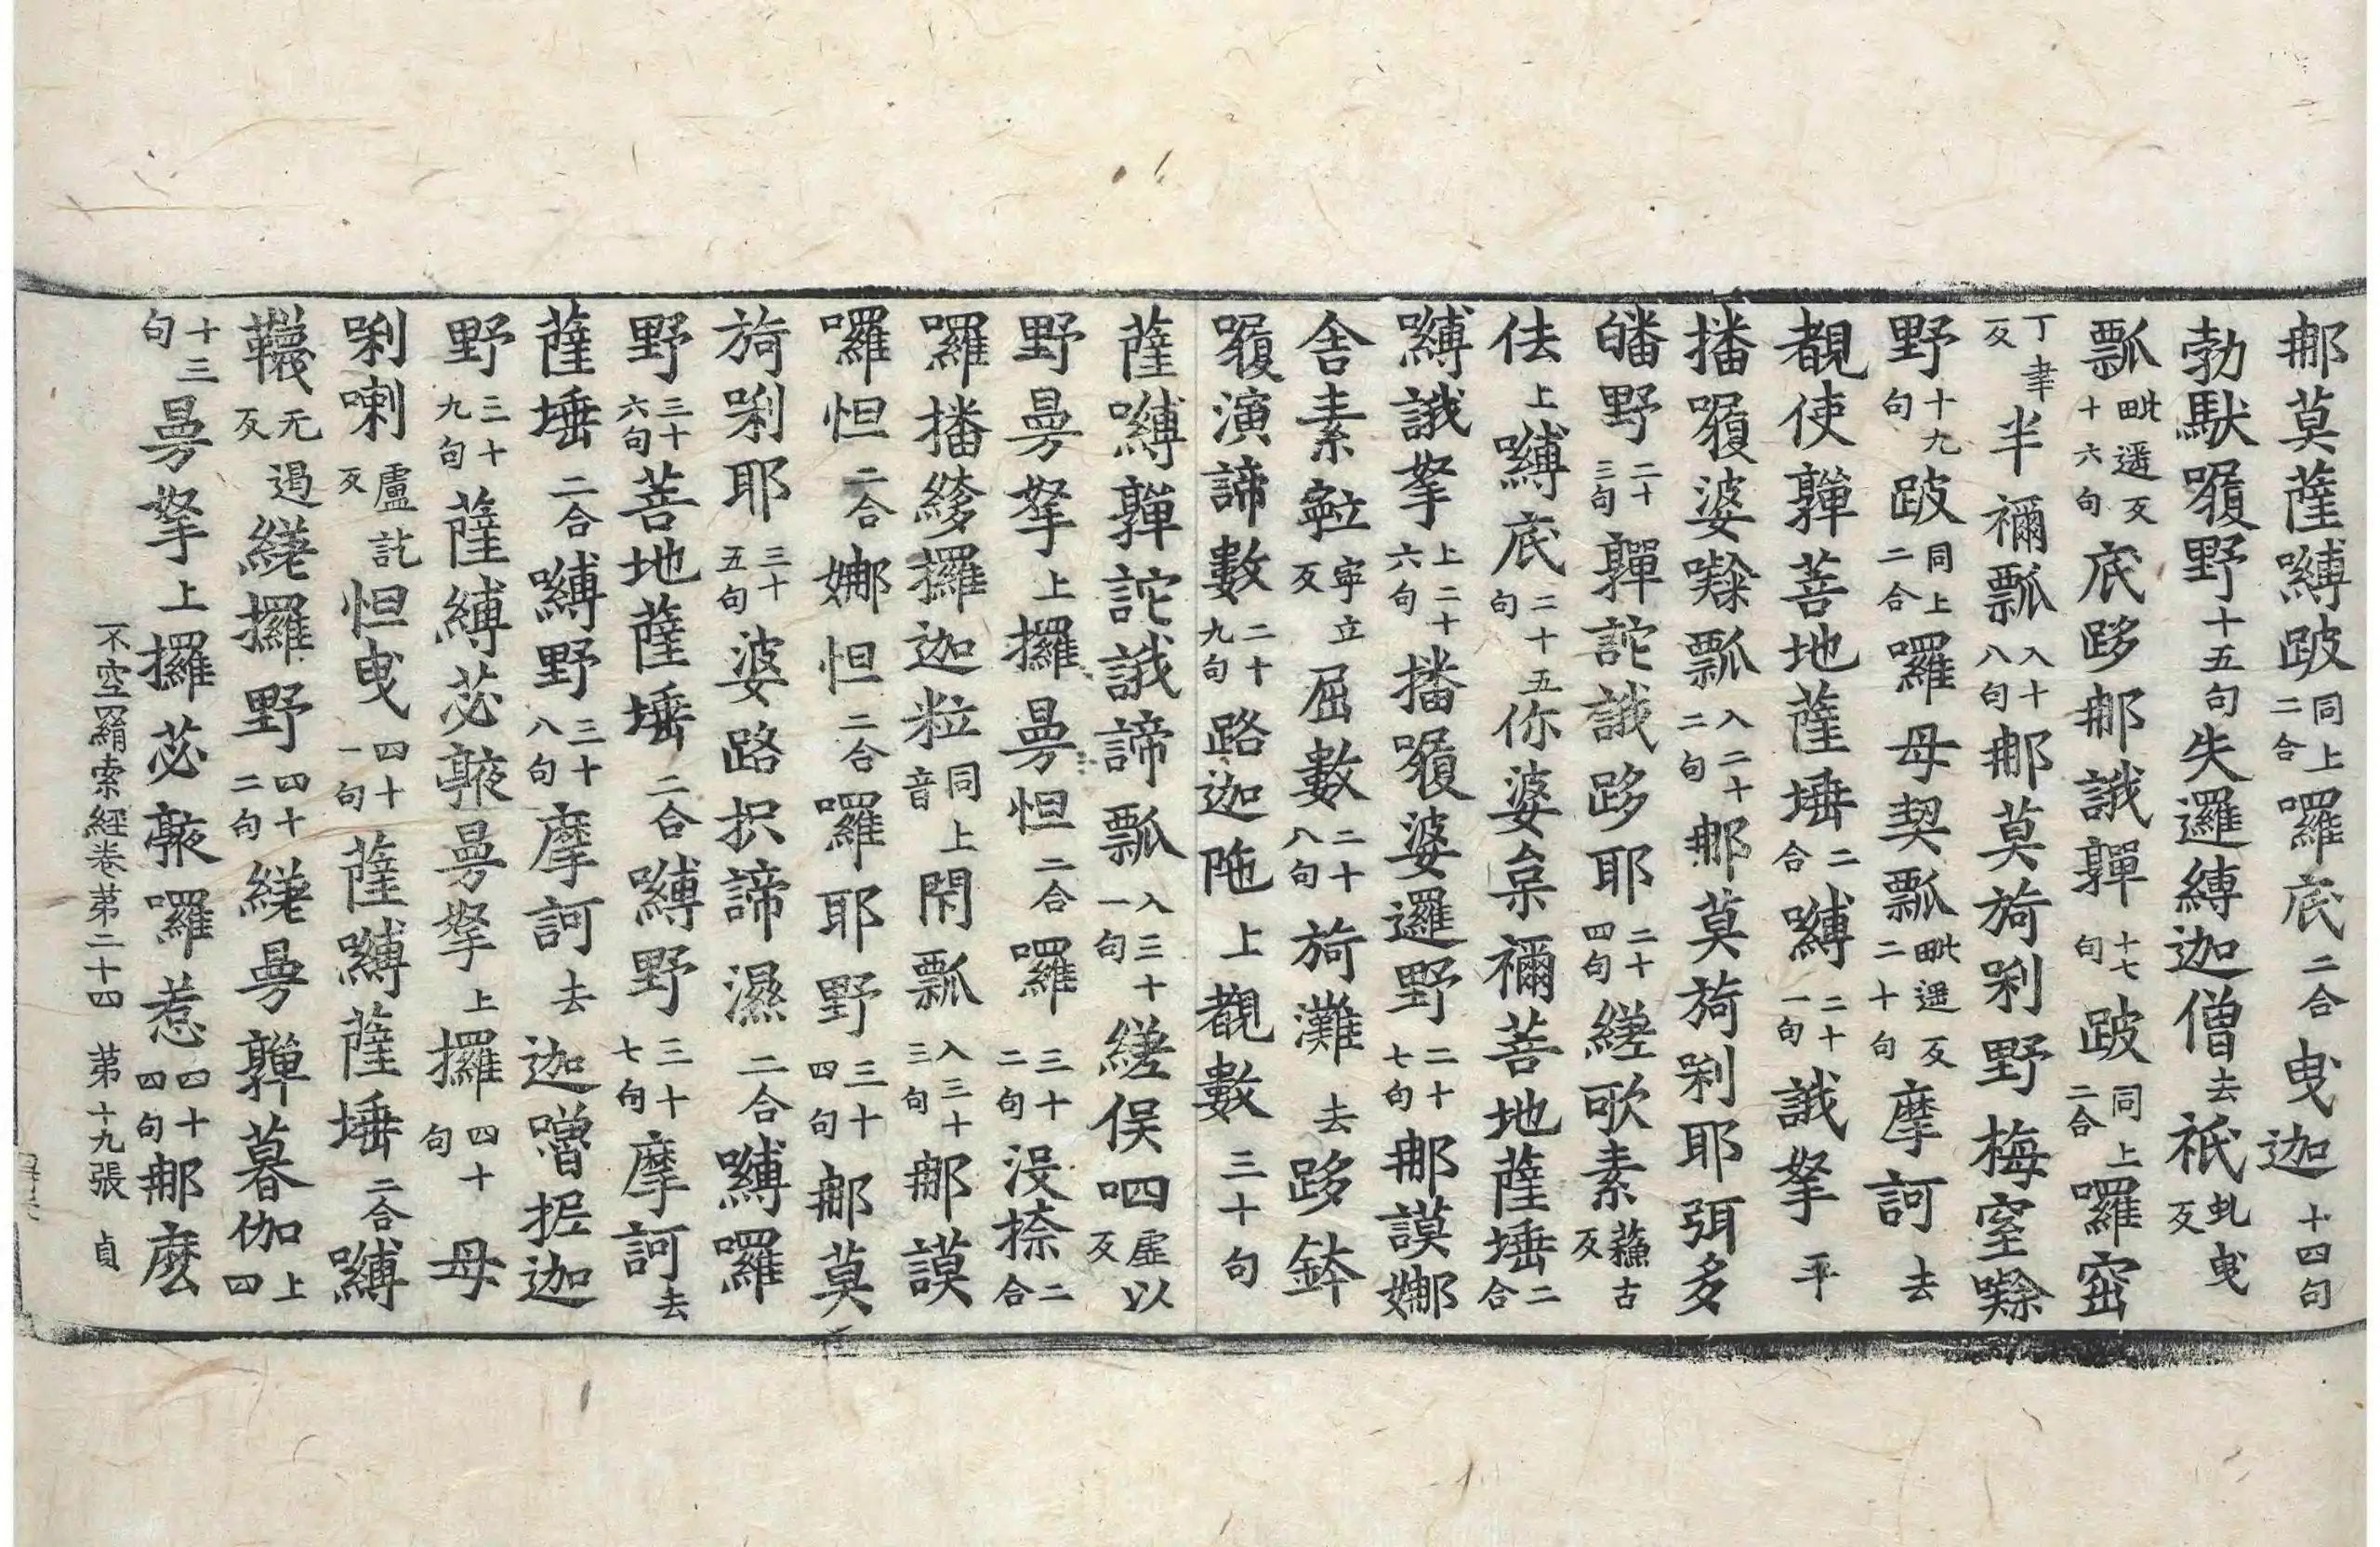 那莫薩嚩跛同上二合囉底二合曳迦十四句
勃馱𡃤野十五句失邏縛迦僧去祇虬曳反
瓢毗遥反十六句底跢那誐嚲十七句跛同上二合囉窋
丁聿反半禰瓢入十八句那莫旖㘑野梅窒㘑
野十九句跛同上二合囉母契瓢毗遥反二十句摩訶去
覩使嚲菩地薩埵二合嚩二十一句誐拏平
播𡃤婆㘓瓢入二十二句那莫旖㘑耶弭多
皤野二十三句嚲詑誐跢耶二十四句縒歌素蘓古反
佉上嚩底二十五句你婆枲禰菩地薩埵二合
嚩誐拏上二十六句播𡃤婆邏野二十七句那謨娜
舍素𪗨寧立反屈數二十八句旖灘去跢鉢
𡃤演諦數二十九句路迦陁上覩數三十句
薩嚩嚲詑誐諦瓢入三十一句縒俁呬虛以反
野曼拏上攞曼怛二合囉三十二句沒捺二合
囉播縿攞迦粒同上音閇瓢入三十三句那謨
囉怛二合娜怛二合囉耶野三十四句那莫
旖㘑耶三十五句婆路枳諦濕二合嚩囉
野三十六句菩地薩埵二合嚩野三十七句摩訶去
薩埵二合嚩野三十八句摩訶去迦嚕抳迦
野三十九句薩縛苾䠒曼拏上攞四十句母
㘑喇盧訖反怛曳四十一句薩嚩薩埵二合嚩
韈无遏反縒攞野四十二句縒曼嚲暮伽上四
十三句曼拏上攞苾䠒囉惹四十四句那麽
不空罥索經卷第二十四　第十九張　貞